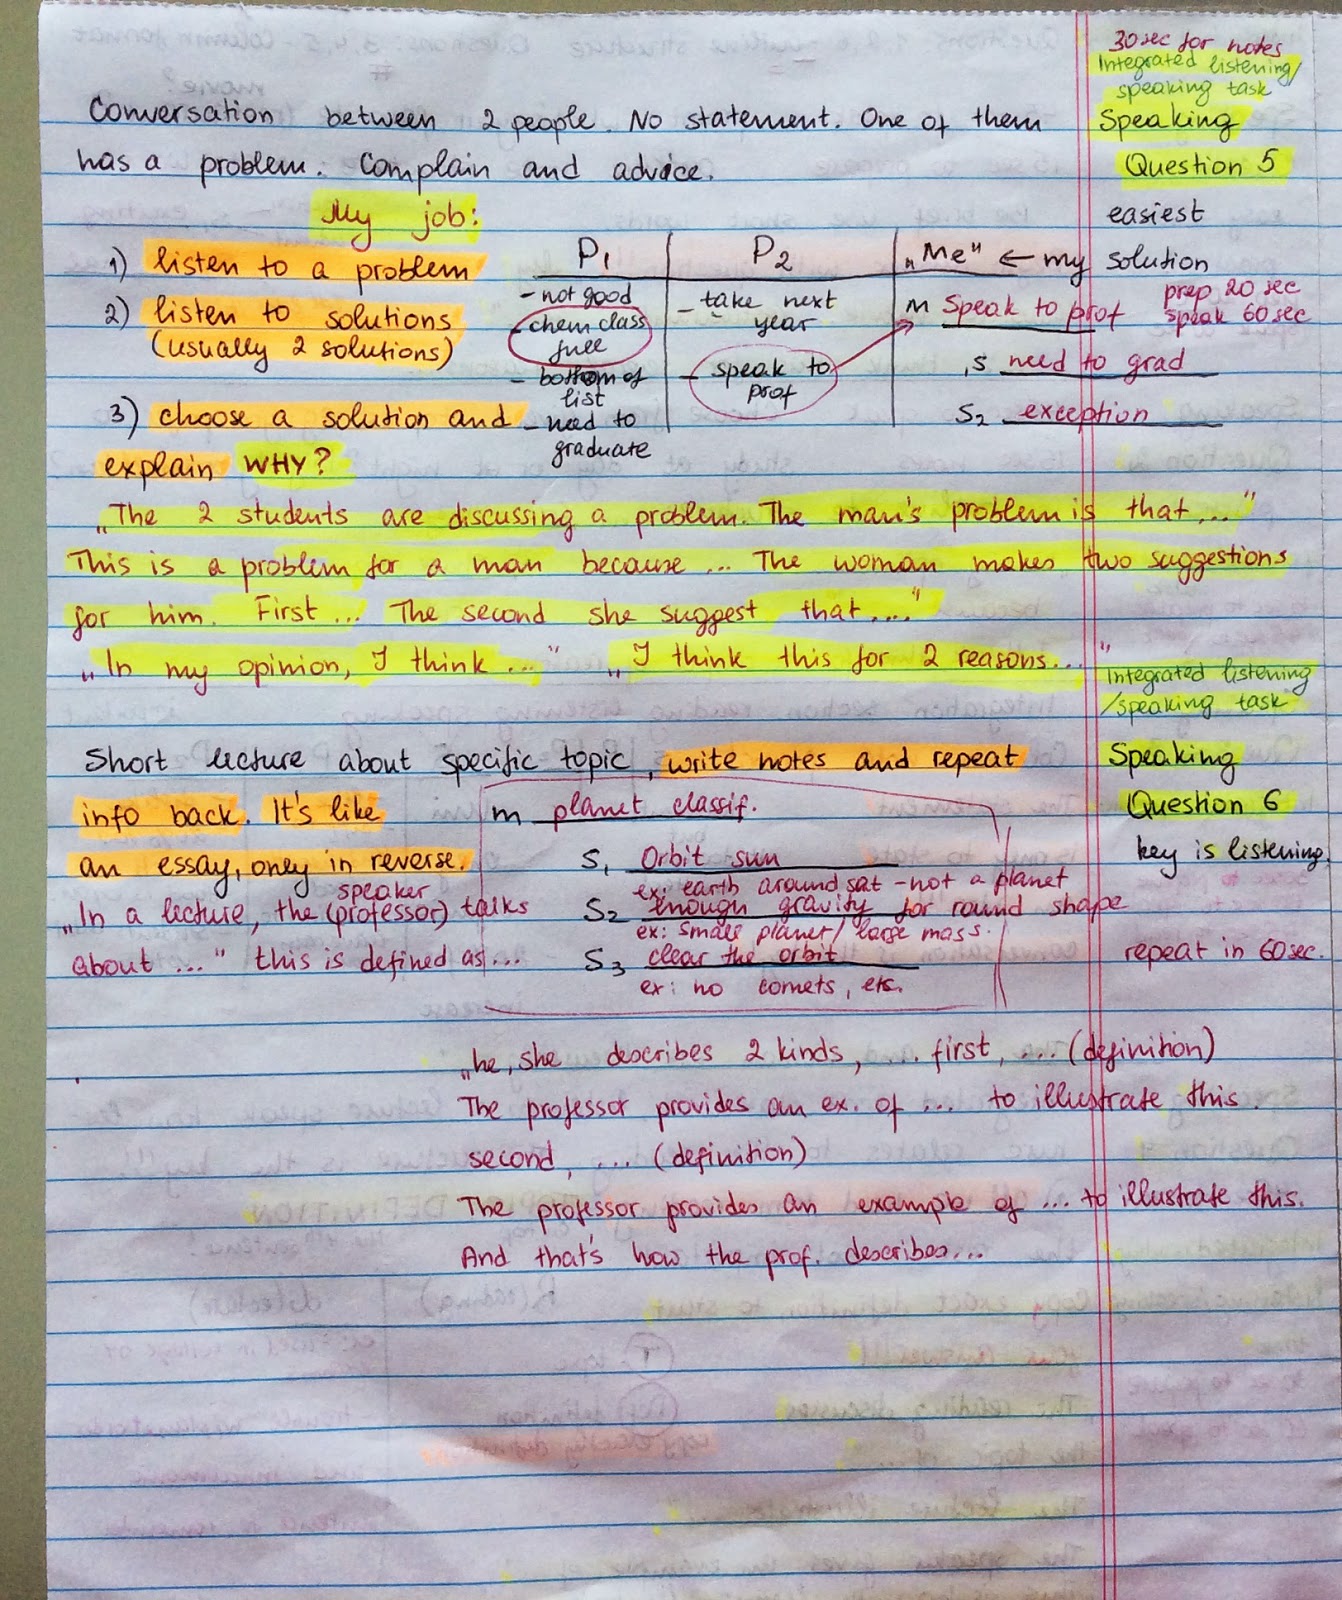 30 sec for notes
Integrated listening/
speaking task
Speaking
Question 5
easiest
Conversation between 2 people. No statement. One of them
has a problem. Complain and advice.
My job:
1) listen to a problem
2) listen to solutions
(usually 2 solutions)
3) choose a solution and
explain WHY?
P1
- not good
- chem class
full
- bottom of
list
- need to
graduate
P2
- take next
year
- speak to
prof
„Me" ← my solution
prep 20 sec
speak 60 sec
m speak to prof
,s need to grad
S2 exception
„The 2 students are discussing a problem. The man's problem is that ..."
This is a problem for a man because ... The woman makes two suggestions
for him. First ... The second she suggest that ...."
„In my opinion, I think ..." „I think this for 2 reasons..."
Integrated listening
/speaking task
Speaking
Question 6
key is listening
repeat in 60 sec.
Short lecture about specific topic, write notes and repeat
info back. It's like
an essay, only in reverse.
speaker
„In a lecture, the (professor) talks
about ..." this is defined as ...
m planet classif.
S1 Orbit sun
ex: earth around sat - not a planet
S2 enough gravity for round shape
ex: small planet/large mass.
S3 clear the orbit
ex: no comets, etc.
„he, she describes 2 kinds, ... first, ... (definition)
The professor provides an ex. of ... to illustrate this.
second, ... (definition)
The professor provides an example of ... to illustrate this.
And that's how the prof. describes...